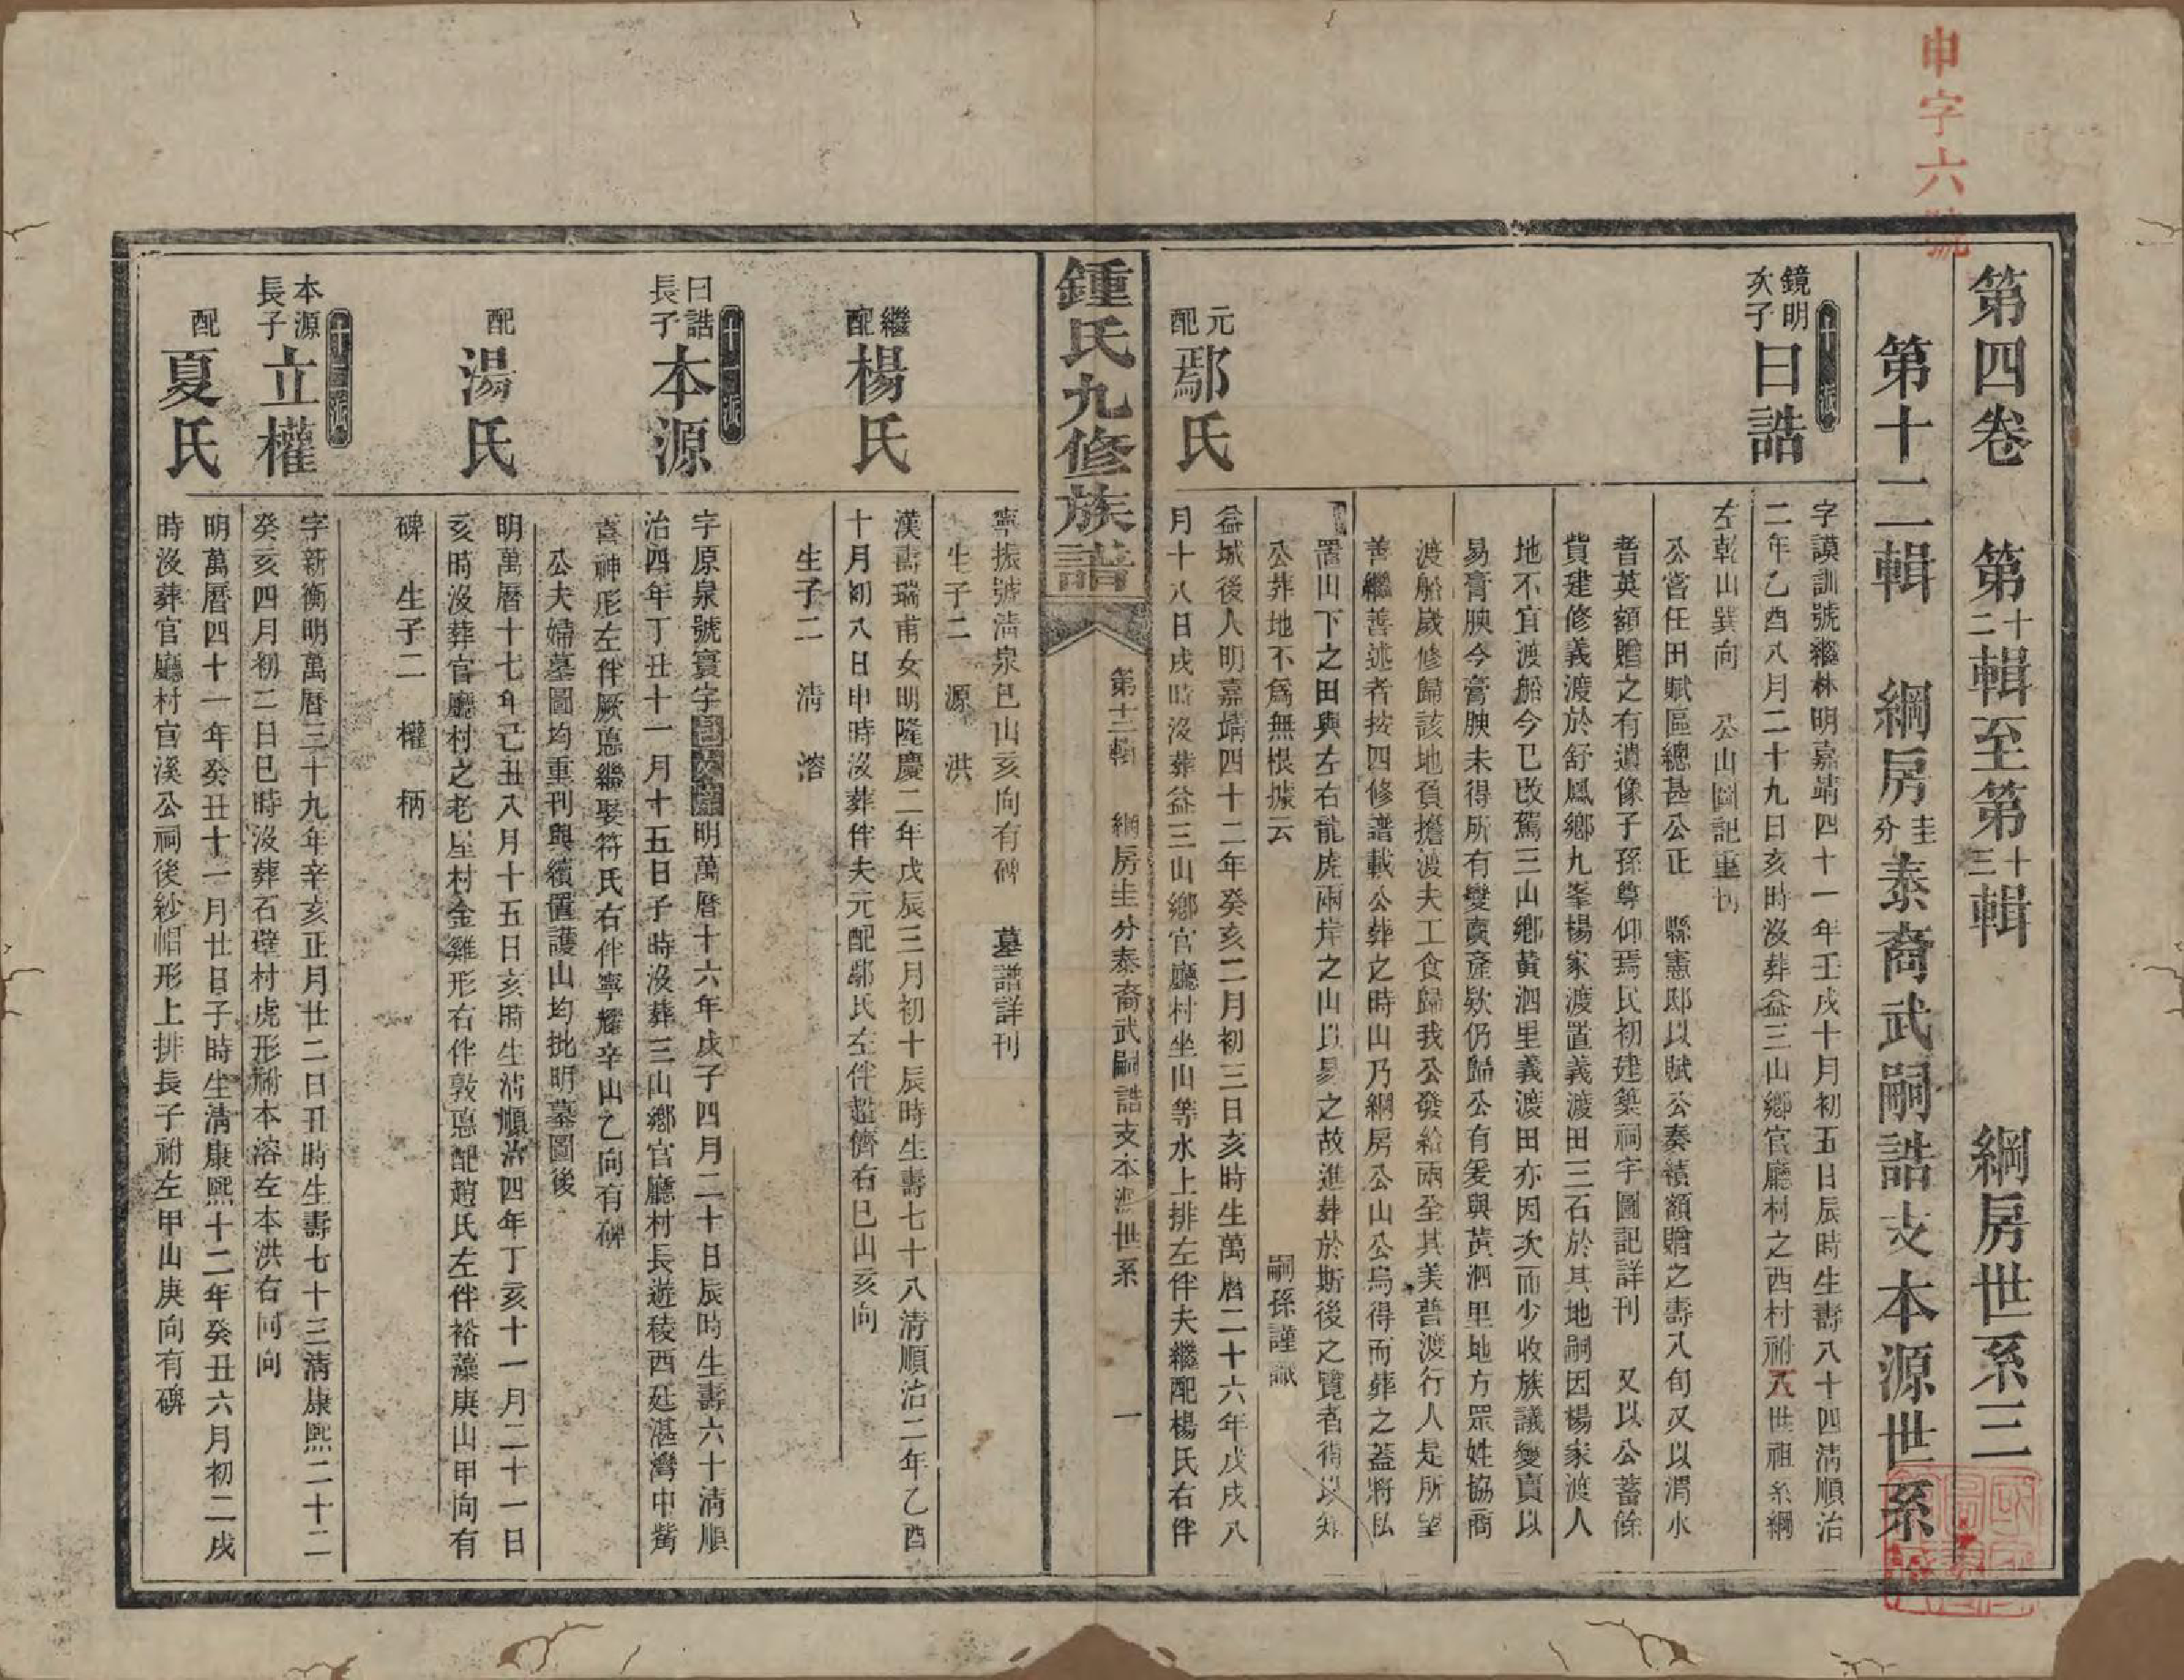 申字六號
第四卷 第十二輯至第十三輯 綱房世系三
第十二輯 綱房圭分泰裔武嗣誥支本源世系
十派
鏡明次子曰誥
字謨訓號繼林明嘉靖四十一年壬戌十月初五日辰時生壽八十四清順治
二年乙酉八月二十九日亥時沒葬益三山鄉官廳村之西村祔八世祖系綱
左乾山巽向 公山圖記重刊
公嘗任田賦區總甚公正 縣憲邸以賦公奏績額贈之壽八旬又以渭水
耆英額贈之有遺像子孫尊仰焉民初建築祠宇圖記詳刊 又以公蓄餘
貲建修義渡於舒鳳鄉九峯楊家渡置義渡田三石於其地嗣因楊家渡人
地不宜渡船今已改駕三山鄉黃泗里義渡田亦因次而少收族議變賣以
易膏腴今膏腴未得所有變賣產欵仍歸公有爰與黃泗里地方眾姓協商
渡船歲修歸該地負擔渡夫工食歸我公發給兩全其美普渡行人是所望
善繼善述者按四修譜載公葬之時山乃綱房公山公烏得而葬之蓋將私
置山下之田與左右龍虎兩岸之山以易之故進葬於斯後之覽者得以知
公葬地不爲無根據云 嗣孫謹識
元配鄢氏
益城後人明嘉靖四十二年癸亥二月初三日亥時生萬曆二十六年戊戌八
月十八日戌時沒葬益三山鄉官廳村坐山等水上排左伴夫繼配楊氏右伴
鍾氏九修族譜
第十二輯 綱房圭分泰裔武嗣誥支本源世系 一
寧振號清泉巳山亥向有碑 墓譜詳刊
生子二 源 洪
繼配楊氏
漢壽瑞甫女明隆慶二年戊辰三月初十辰時生壽七十八清順治二年乙酉
十月初八日申時沒葬伴夫元配鄢氏左伴超儕右巳山亥向
生子二 清 溶
十一派
曰誥長子本源
字原泉號寰宇明萬曆十六年戊子四月二十日辰時生壽六十清順
治四年丁丑十一月十五日子時沒葬三山鄉官廳村長遊稜西延湛灣中觜
喜神形左伴厥悳繼娶符氏右伴寧耀辛山乙向有碑
公夫婦墓圖均重刊與續置護山均批明墓圖後
配湯氏
明萬曆十七年己丑八月十五日亥時生清順治四年丁亥十一月二十一日
亥時沒葬官廳村之老屋村金雞形右伴敦悳配趙氏左伴裕藻庚山甲向有
碑 生子二 權 柄
十二派
本源長子立權
字新衡明萬曆三十九年辛亥正月廿二日丑時生壽七十三清康熙二十二
癸亥四月初二日巳時沒葬石壁村虎形祔本溶左本洪右同向
配夏氏
明萬曆四十一年癸丑十一月廿日子時生清康熙十二年癸丑六月初二戌
時沒葬官廳村官溪公祠後紗帽形上排長子祔左甲山庚向有碑